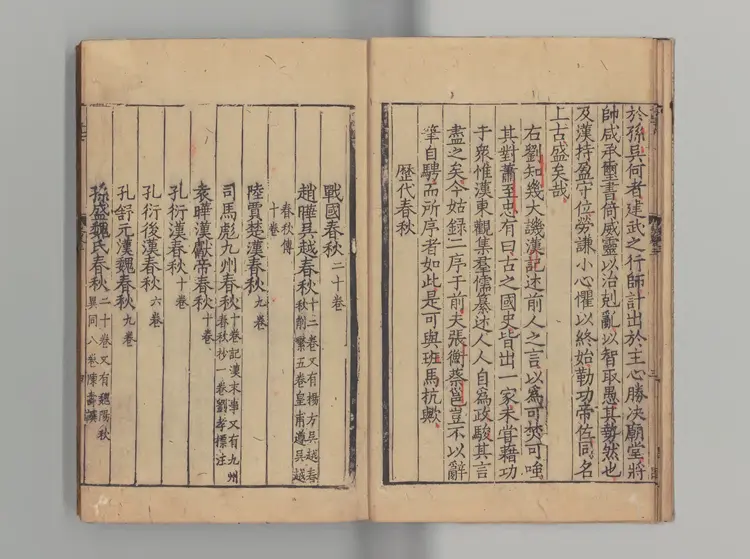 於孫吳何者建武之行師計出於主心勝决廟堂將
帥咸承璽書倚威靈以治剋亂以智取愚其勢然也
及漢持盈守位勞謙小心懼以終始勤功帝位同名
上古盛矣哉
右劉知幾大譏漢記述前人之言以爲可焚可唾
其對蕭至忠有曰古之國史皆出一家未甞藉功
于衆惟漢東觀集羣儒纂述人人自爲政駿其言
盡之矣今姑録二序于前夫張衡蔡邕豈不以辭
筆自騁而所序者如此是可與班馬抗歟
歷代春秋
戰國春秋二十卷
趙曄吳越春秋十二卷又有楊方吳越春
秋削繁五卷皇甫遵吳越
春秋傳
十卷
陸賈楚漢春秋九卷
司馬彪九州春秋十卷記漢末事又有九州
春秋抄一卷劉孝標注
袁曄漢獻帝春秋十卷
孔衍漢春秋十卷
孔衍後漢春秋六卷
孔舒元漢魏春秋九卷
孫盛魏氏春秋二十卷又有魏陽秋
異同八卷陳壽撰